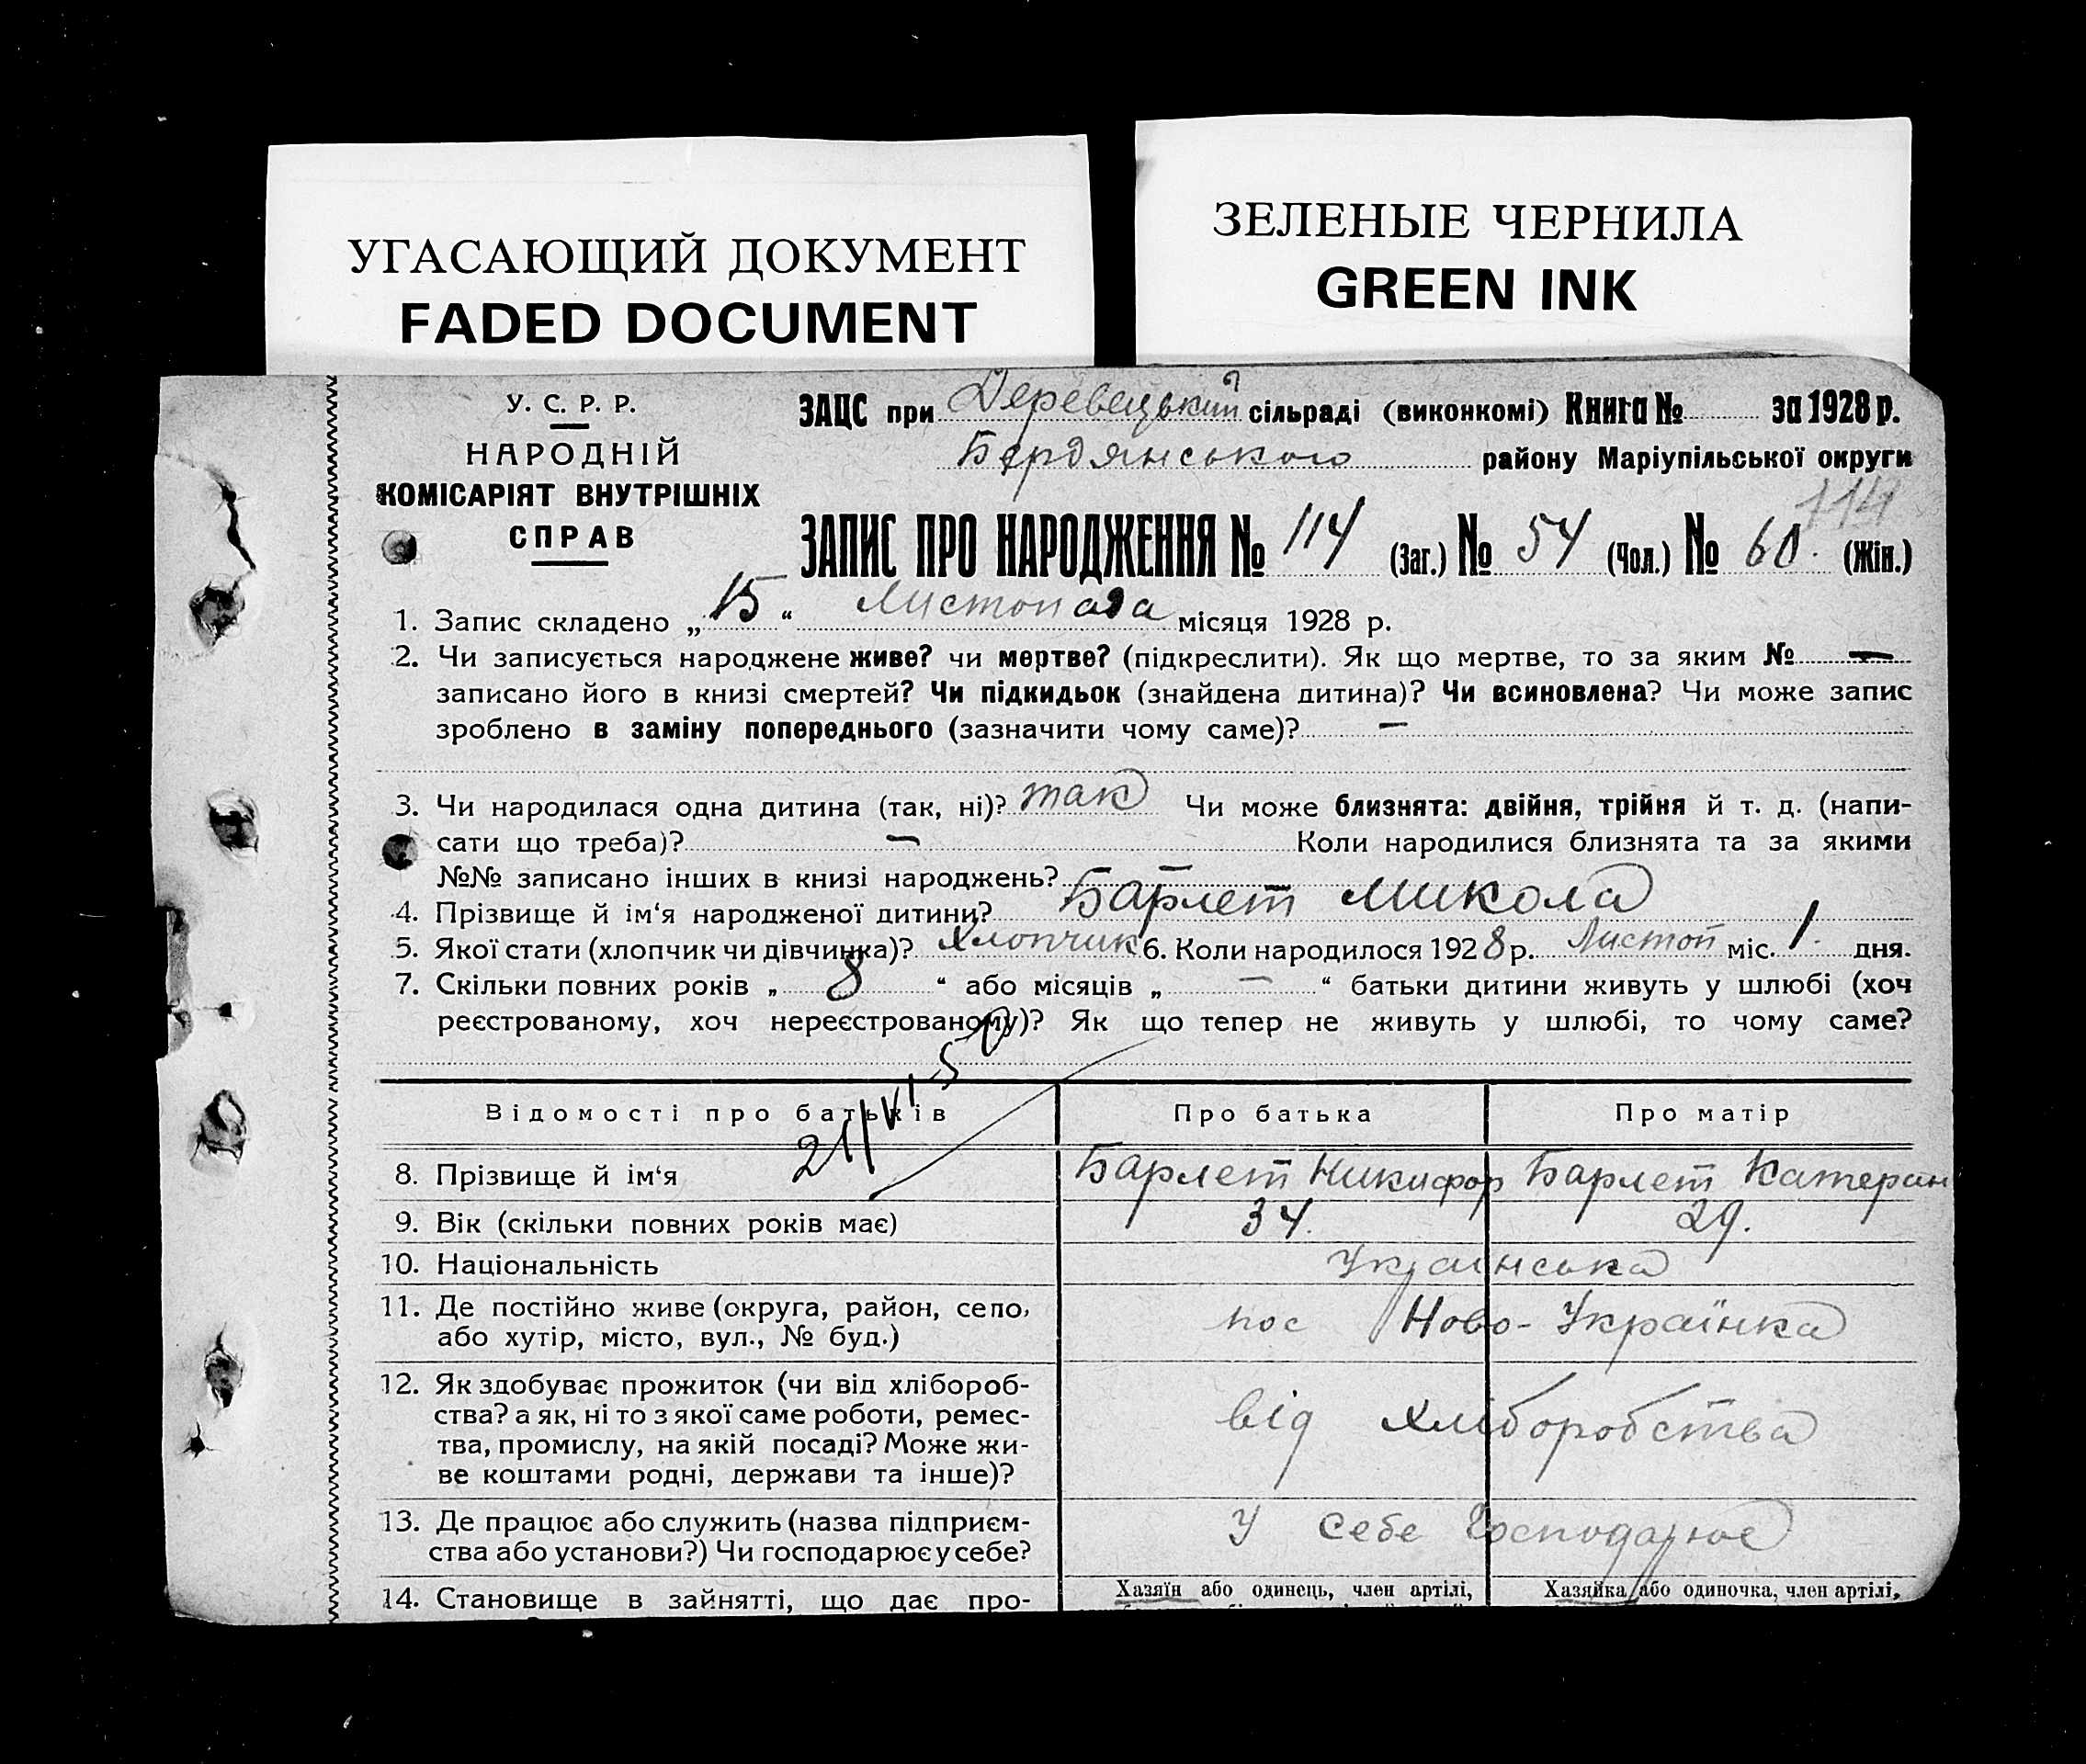 УГАСАЮЩИЙ ДОКУМЕНТ
FADED DOCUMENT
ЗЕЛЕНЫЕ ЧЕРНИЛА
GREEN INK
У. С. Р. Р.
НАРОДНІЙ
КОМІСАРІЯТ ВНУТРІШНІХ
СПРАВ
ЗАЦС при сільраді (виконкомі) Книга № за 1928 р.
Бердянського району Маріупільської округи
114
ЗАПИС ПРО НАРОДЖЕННЯ № 114 (Заг.) № 54 (Чол.) № 60. (Жін.)
1. Запис складено „15“ Листопада місяця 1928 р.
2. Чи записується народжене живе? чи мертве? (підкреслити). Як що мертве, то за яким № —
записано його в книзі смертей? Чи підкидьок (знайдена дитина)? Чи всиновлена? Чи може запис
зроблено в заміну попереднього (зазначити чому саме)? —
3. Чи народилася одна дитина (так, ні)? так Чи може близнята: двійня, трійня й т. д. (напи-
сати що треба)? — Коли народилися близнята та за якими
№№ записано інших в книзі народжень?
4. Прізвище й ім‘я народженої дитини? Барлет Микола
5. Якої стати (хлопчик чи дівчинка)? Хлопчик 6. Коли народилося 1928 р. Листоп міс. 1. дня.
7. Скільки повних років „ 8 “ або місяців „ — “ батьки дитини живуть у шлюбі (хоч
реєстрованому, хоч нереєстрованому)? Як що тепер не живуть у шлюбі, то чому саме?
Відомості про батьків Про батька Про матір
8. Прізвище й ім‘я Барлет Никифор Барлет Катерин
9. Вік (скільки повних років має) 34. 29.
10. Національність Українська
11. Де постійно живе (округа, район, село,
або хутір, місто, вул., № буд.) пос Ново-Українка
12. Як здобуває прожиток (чи від хлібороб-
ства? а як, ні то з якої саме роботи, ремес-
тва, промислу, на якій посаді? Може жи-
ве коштами родні, держави та інше)? від хліборобства
13. Де працює або служить (назва підприєм-
ства або установи?) Чи господарює у себе? У себе Господарює
14. Становище в зайнятті, що дає про- Хазяїн або одинець, член артілі, Хазяйка або одиночка, член артілі,